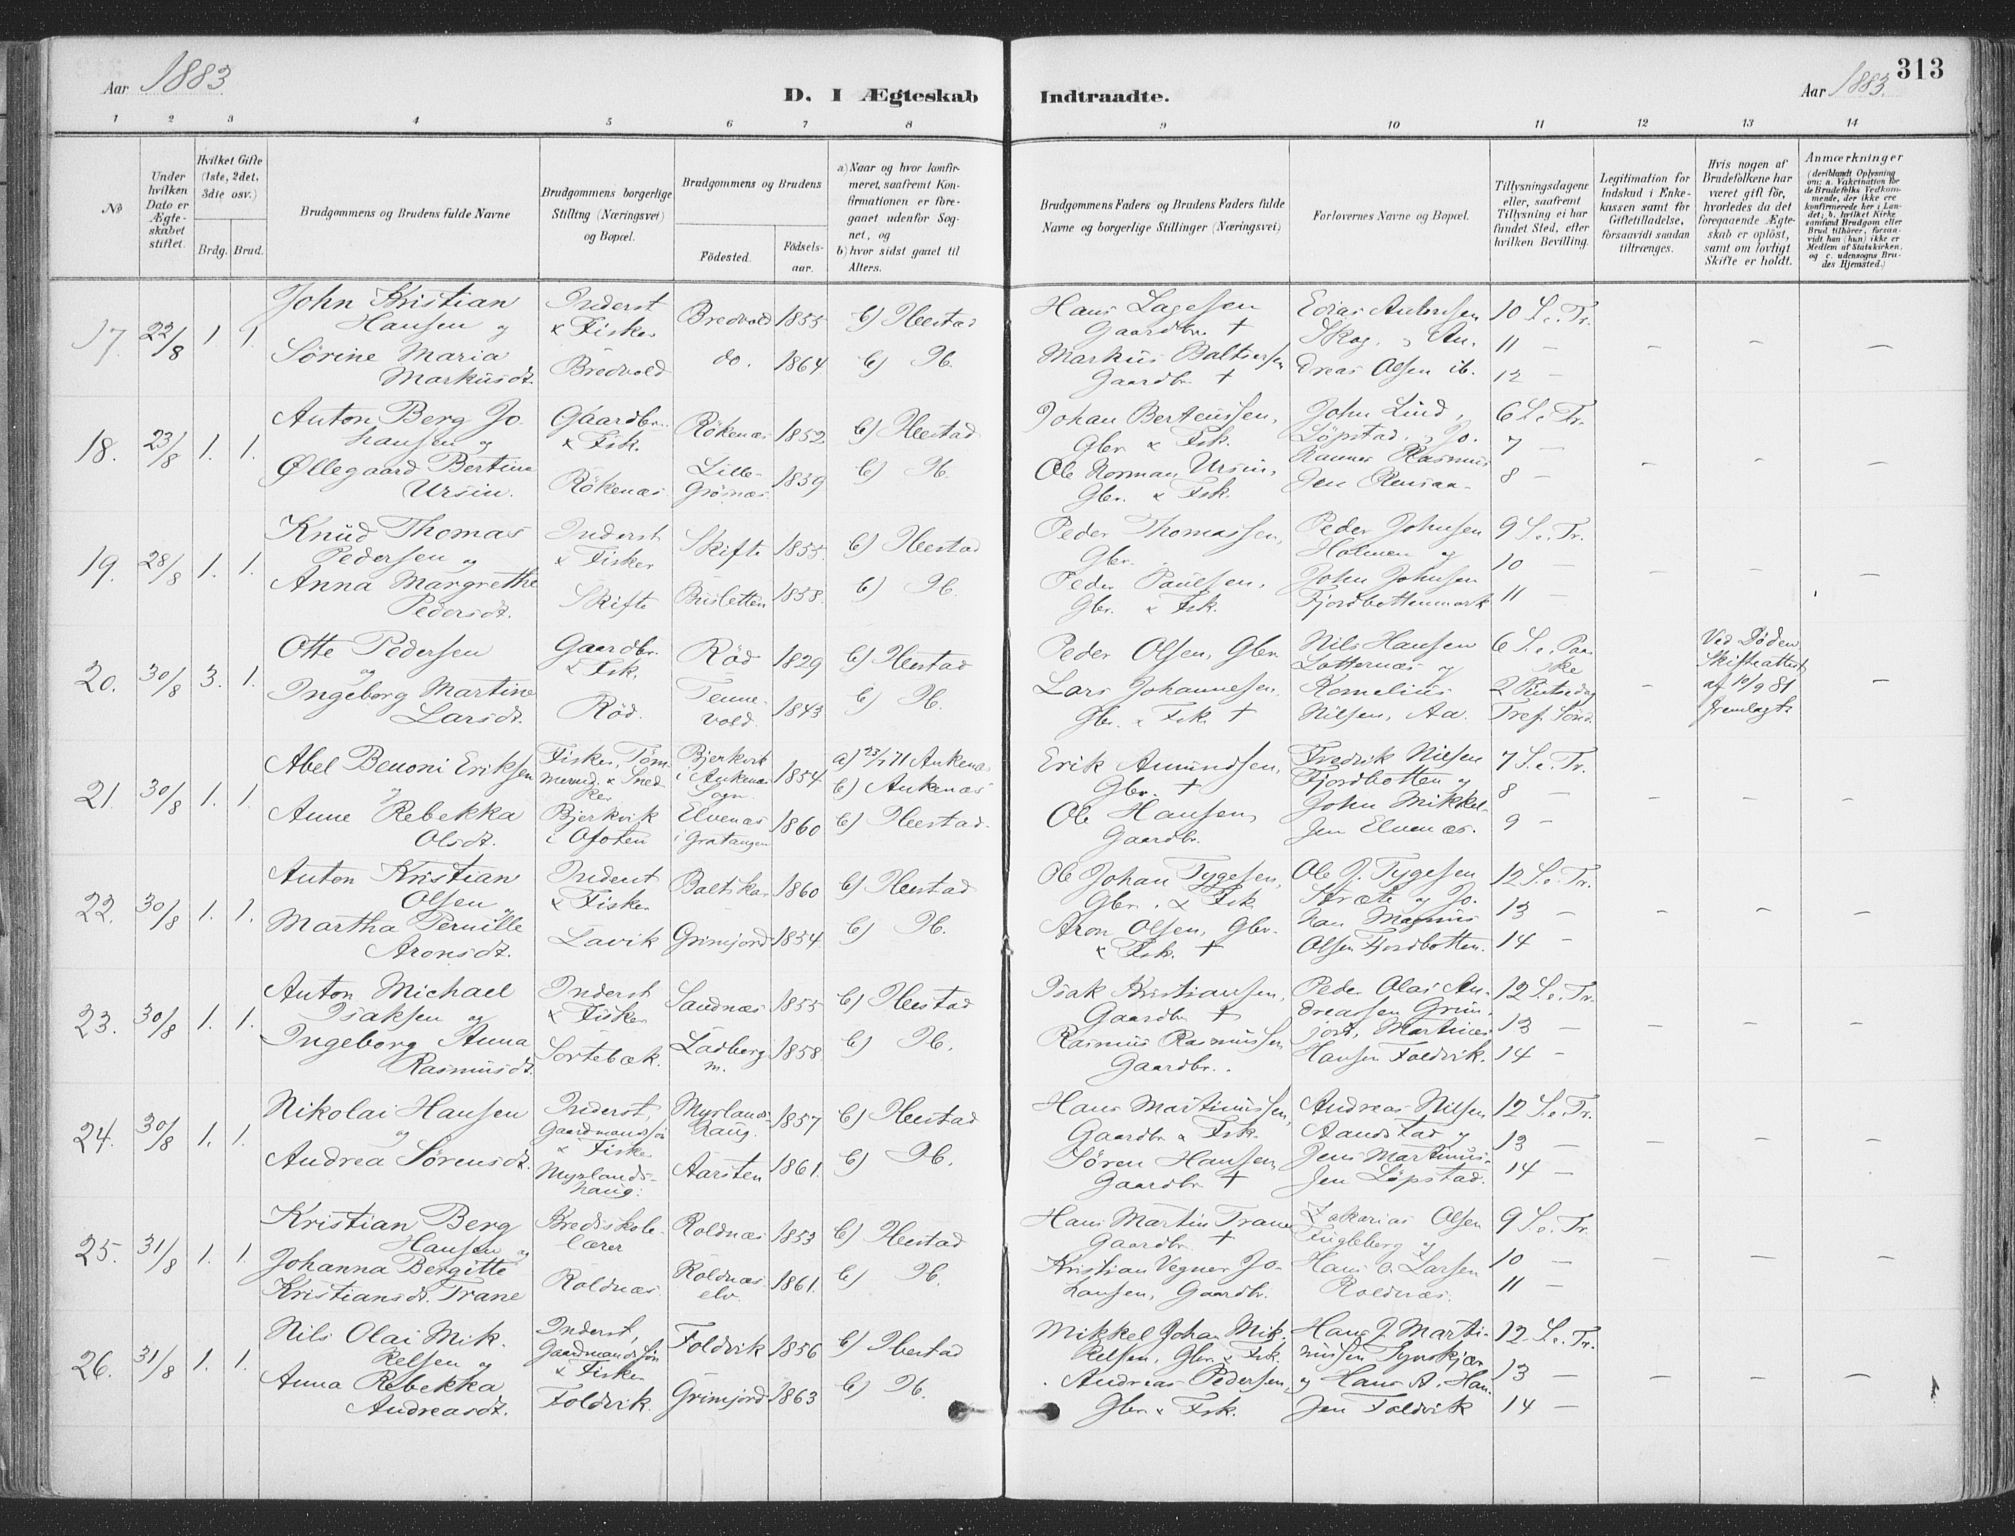 Aar 1883
D. I Ægteskab
Indtraadte.
Aar 1883.
313
1 2 3 4 5 6 7 8 9 10 11 12 13 14
№
Under hvilken Dato er Ægteskabet stiftet.
Hvilket Gifte (1ste, 2det, 3die osv.)
Brdg. Brud.
Brudgommens og Brudens fulde Navne
Brudgommens borgerlige Stilling (Næringsvei) og Bopæl.
Brudgommens og Brudens
Fødested.
Fødselsaar.
a) Naar og hvor konfirmeret, saafremt Konfirmationen er foregaaet udenfor Sognet, og
b) hvor sidst gaaet til Alters.
Brudgommens Faders og Brudens Faders fulde Navne og borgerlige Stillinger (Næringsvei)
Forlovernes Navne og Bopæl.
Tillysningsdagene eller, saafremt Tillysning ei har fundet Sted, efter hvilken Bevilling.
Legitimation for Indskud i Enkekassen samt for Giftetilladelse, forsaavidt saadan tiltrænges.
Hvis nogen af Brudefolkene har været gift før, hvorledes da det foregaaende Ægteskab er opløst, samt om lovligt Skifte er holdt.
Anmærkninger
(deriblandt Oplysning om: a. Vakcination for de Brudefolks Vedkommende, der ikke ere konfirmerede her i Landet; b. hvilket Kirkesamfund Brudgom eller Brud tilhører, forsaavidt han (hun) ikke er Medlem af Statskirken, og c. udensogns Brudes Hjemsted.)
17. 22/8 1. 1.
John Kristian Hansen og
Sørine Maria Markusdt.
Inderst & Fisker
Bredvold
Bredvold 1855 b) Ibestad
do. 1864 b) Ib.
Hans Lagesen Gaardbr. †
Markus Baltsersen Gaardbr †
Skog. An-
dreas Olsen ib.
10 S. e. Tr.
11 —
12 —
18. 23/8 1. 1.
Anton Berg Johansen og
Øllegaard Bertine Ursin.
Gaardbr. & Fisk.
Røkenæs
Røkenæs 1852 b) Ibestad
Lille-Grønæs. 1839 b) Ib.
Johan Berteussen, Gbr & Fsk.
Ole Norman Ursin, Gbr. & Fsk.
John Lind, Løpstad, Jo-
hannes Rasmus-
sen
6 S. e. Tr.
7 —
8 —
19. 28/8 1. 1.
Knud Thomas Pedersen og
Anna Margrethe Pedersdt.
Inderst & Fisker
Skifte
Skifte 1855 b) Ibestad
Busletten 1858. b) Ib.
Peder Thomassen, Gbr.
Peder Paulsen, Gbr. & Fsk.
Peder Johnsen
Holmen og
John Johnsen
Fjordbottenmark
9 S. e. Tr.
10 —
11 —
20. 30/8 3. 1.
Otte Pedersen og
Ingeborg Martine Larsdt.
Gaardbr. & Fsk.
Rød.
Rød 1829 b) Ibestad
Tennevold. 1843 b) Ib.
Peder Olsen, Gbr
Lars Johannesen Gbr. & Fsk †
Nils Hansen
Lotternæs og
Kornelius
Nilsen, Aa.
6 S. e. Paaske
2 Pintsedag
Tref. Sønd.
Ved Døden
Skifteattest
af 10/9 81
fremlagt.
21. 30/8 1. 1.
Abel Benoni Eriksen &
Anne Rebekka Olsdt.
Fisker, Tømmermd. & Snedker
Bjerkvik i Ofoten
Bjerkvik i Ankenæs Sogn. 1854. a) 23/7 71 Ankenæs
b) Ankenæs
Elvenæs i Gratangen 1860 b) Ibestad.
Erik Amundsen, Gbr. †
Ole Hansen, Gaardbr.
Fredrik Nilsen
Fjordbotten og
John Mikkel-
sen Elvenæs.
7 S. e. Tr.
8 —
9 —
22. 30/8 1. 1.
Anton Kristian Olsen og
Martha Pernille Aronsdt.
Inderst & Fisker
Lavik
Baltskar 1860 b) Ibestad
Grimjord 1854. b) Ib.
Ole Johan Tygesen, Gbr. & Fsk
Aron Olsen, Gbr. & Fsk. †
Ole J. Tygesen
Stræte og Jo-
han Magnus
Olsen Fjordbotten.
12 S. e. Tr.
13 —
14 —
23. 30/8 1. 1.
Anton Michael Isaksen og
Ingeborg Anna Rasmusdt.
Inderst & Fisker
Sortebæk.
Sandnæs 1855 b) Ibestad
Ladberg m. 1858. b) Ib.
Isak Kristiansen, Gaardbr †
Rasmus Rasmussen Gaardbr.
Peder Olai An-
dreassen Grim-
jord, Martinus
Hansen Foldvik.
12 S. e. Tr.
13 —
14 —
24. 30/8 1. 1.
Nikolai Hansen og
Andrea Sørensdt.
Inderst, Gaardmandssøn & Fisker
Myrlandshaug.
Myrlandshaug. 1857 b) Ibestad
Aarsten 1861. b) Ib.
Hans Martinussen, Gaardbr & Fsk.
Søren Hansen, Gaardbr †
Andreas Nilsen
Aandstad og
Jens Martinus-
sen Løpstad.
12 S. e. Tr.
13 —
14 —
25. 31/8 1. 1.
Kristian Berg Hansen og
Johanna Bergitte Kristiansdt. Trane
Kredsskolelærer
Roldnæs.
Roldnæs 1853 b) Ibestad
Roldnæselv. 1861. b) Ib.
Hans Martin Trane Gaardbr †
Kristian Vegner Johansen, Gaardbr.
Zakarias Olsen
Fugleberg og
Hans O. Larsen
Roldnæs.
9 S. e. Tr.
10 —
11 —
26. 31/8 1. 1.
Nils Olai Mikkelsen og
Anna Rebekka Andreasdt.
Inderst, Gaardmandssøn & Fisker
Foldvik.
Foldvik 1856 b) Ibestad
Grimjord 1863 b) Ib.
Mikkel Johan Mikkelsen, Gbr & Fsk.
Andreas Pedersen, Gbr & Fsk.
Hans J. Marti-
nussen
og Hans A. Han-
sen Foldvik
12 S. e. Tr.
13 —
14 —